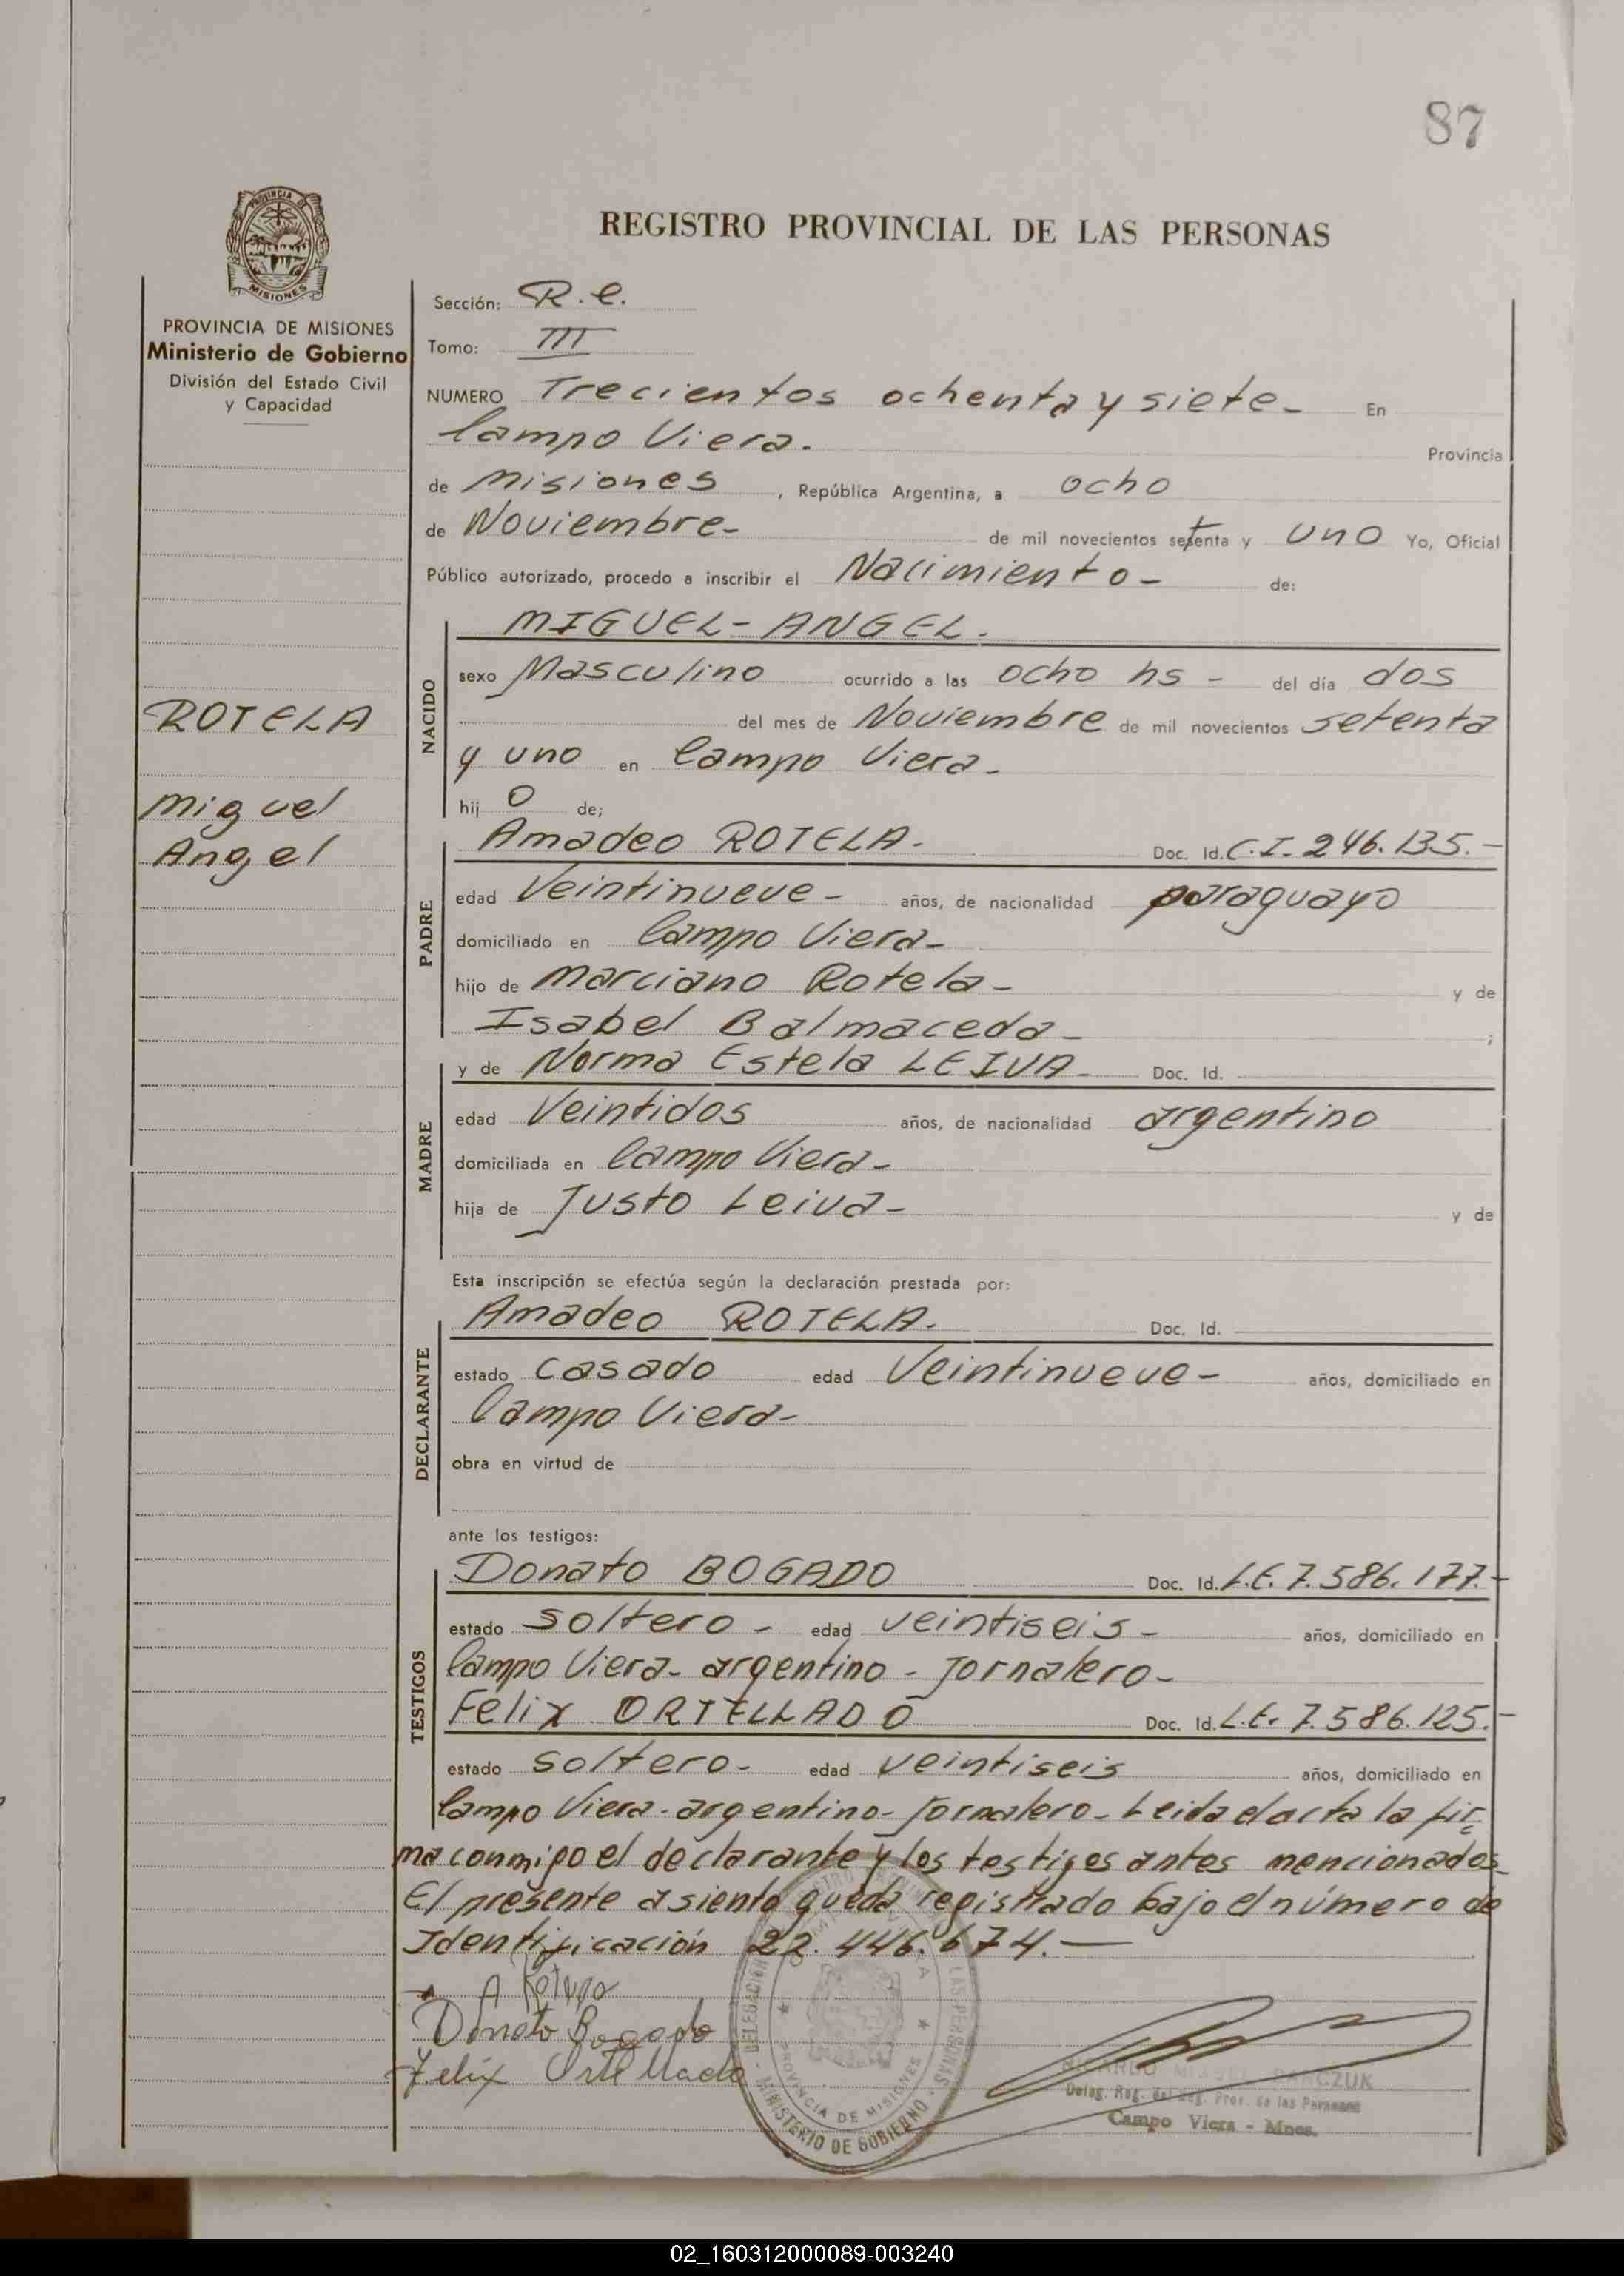 87
REGISTRO PROVINCIAL DE LAS PERSONAS
PROVINCIA DE MISIONES
Ministerio de Gobierno
División del Estado Civil
y Capacidad
ROTELA
Miguel
Angel
Sección: R.C.
Tomo: III
NUMERO Trecientos ochenta y siete- En
Campo Viera. Provincia
de Misiones, República Argentina, a ocho
de Noviembre- de mil novecientos setenta y uno Yo, Oficial
Público autorizado, procedo a inscribir el Nacimiento- de:
NACIDO
MIGUEL-ANGEL.
sexo Masculino ocurrido a las ocho hs - del día dos
del mes de Noviembre de mil novecientos setenta
y uno en Campo Viera-
hij o de;
PADRE
Amadeo ROTELA. Doc. Id. C.I. 246.135.-
edad Veintinueve- años, de nacionalidad paraguayo
domiciliado en Campo Viera-
hijo de Marciano Rotela- y de
Isabel Balmaceda- ;
MADRE
y de Norma Estela LEIVA- Doc. Id.
edad Veintidos años, de nacionalidad argentina
domiciliada en Campo Viera-
hija de Justo Leiva- y de
Esta inscripción se efectúa según la declaración prestada por:
DECLARANTE
Amadeo ROTELA. Doc. Id.
estado casado edad Veintinueve- años, domiciliado en
Campo Viera-
obra en virtud de
ante los testigos:
TESTIGOS
Donato BOGADO Doc. Id. L.E. 7.586.177.-
estado soltero- edad veintiseis- años, domiciliado en
Campo Viera- argentino- Jornalero-
Felix ORTELLADO Doc. Id. L.E. 7.586.125.-
estado soltero- edad veintiseis años, domiciliado en
Campo Viera- argentino- Jornalero- Leida el acta la fir=
ma conmigo el declarante y los testigos antes mencionados-
El presente asiento queda registrado bajo el número de
Identificación 22.446.674.-
Donato Bogado
Felix Ortellado
DELEGACIÓN LAS PERSONAS
PROVINCIA DE MISIONES
MINISTERIO DE GOBIERNO
RICARDO MIGUEL
Deleg. Reg. del Reg. Prov. de las Personas
Campo Viera - Mnes.
02_160312000089-003240